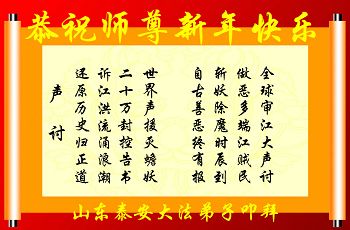 恭祝师尊新年快乐
全球审江大声讨
做恶多端江贼民
斩妖除魔时辰到
自古善恶终有报
世界声援灭蟾妖
二十万封控告书
诉江洪流涌浪潮
还原历史归正道
声讨
山东泰安大法弟子叩拜